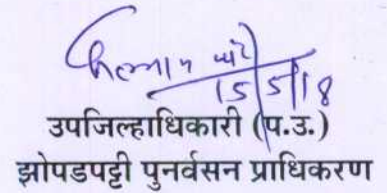 15/5/18
उपजिल्हाधिकारी (प.उ.)
झोपडपट्टी पुनर्वसन प्राधिकरण